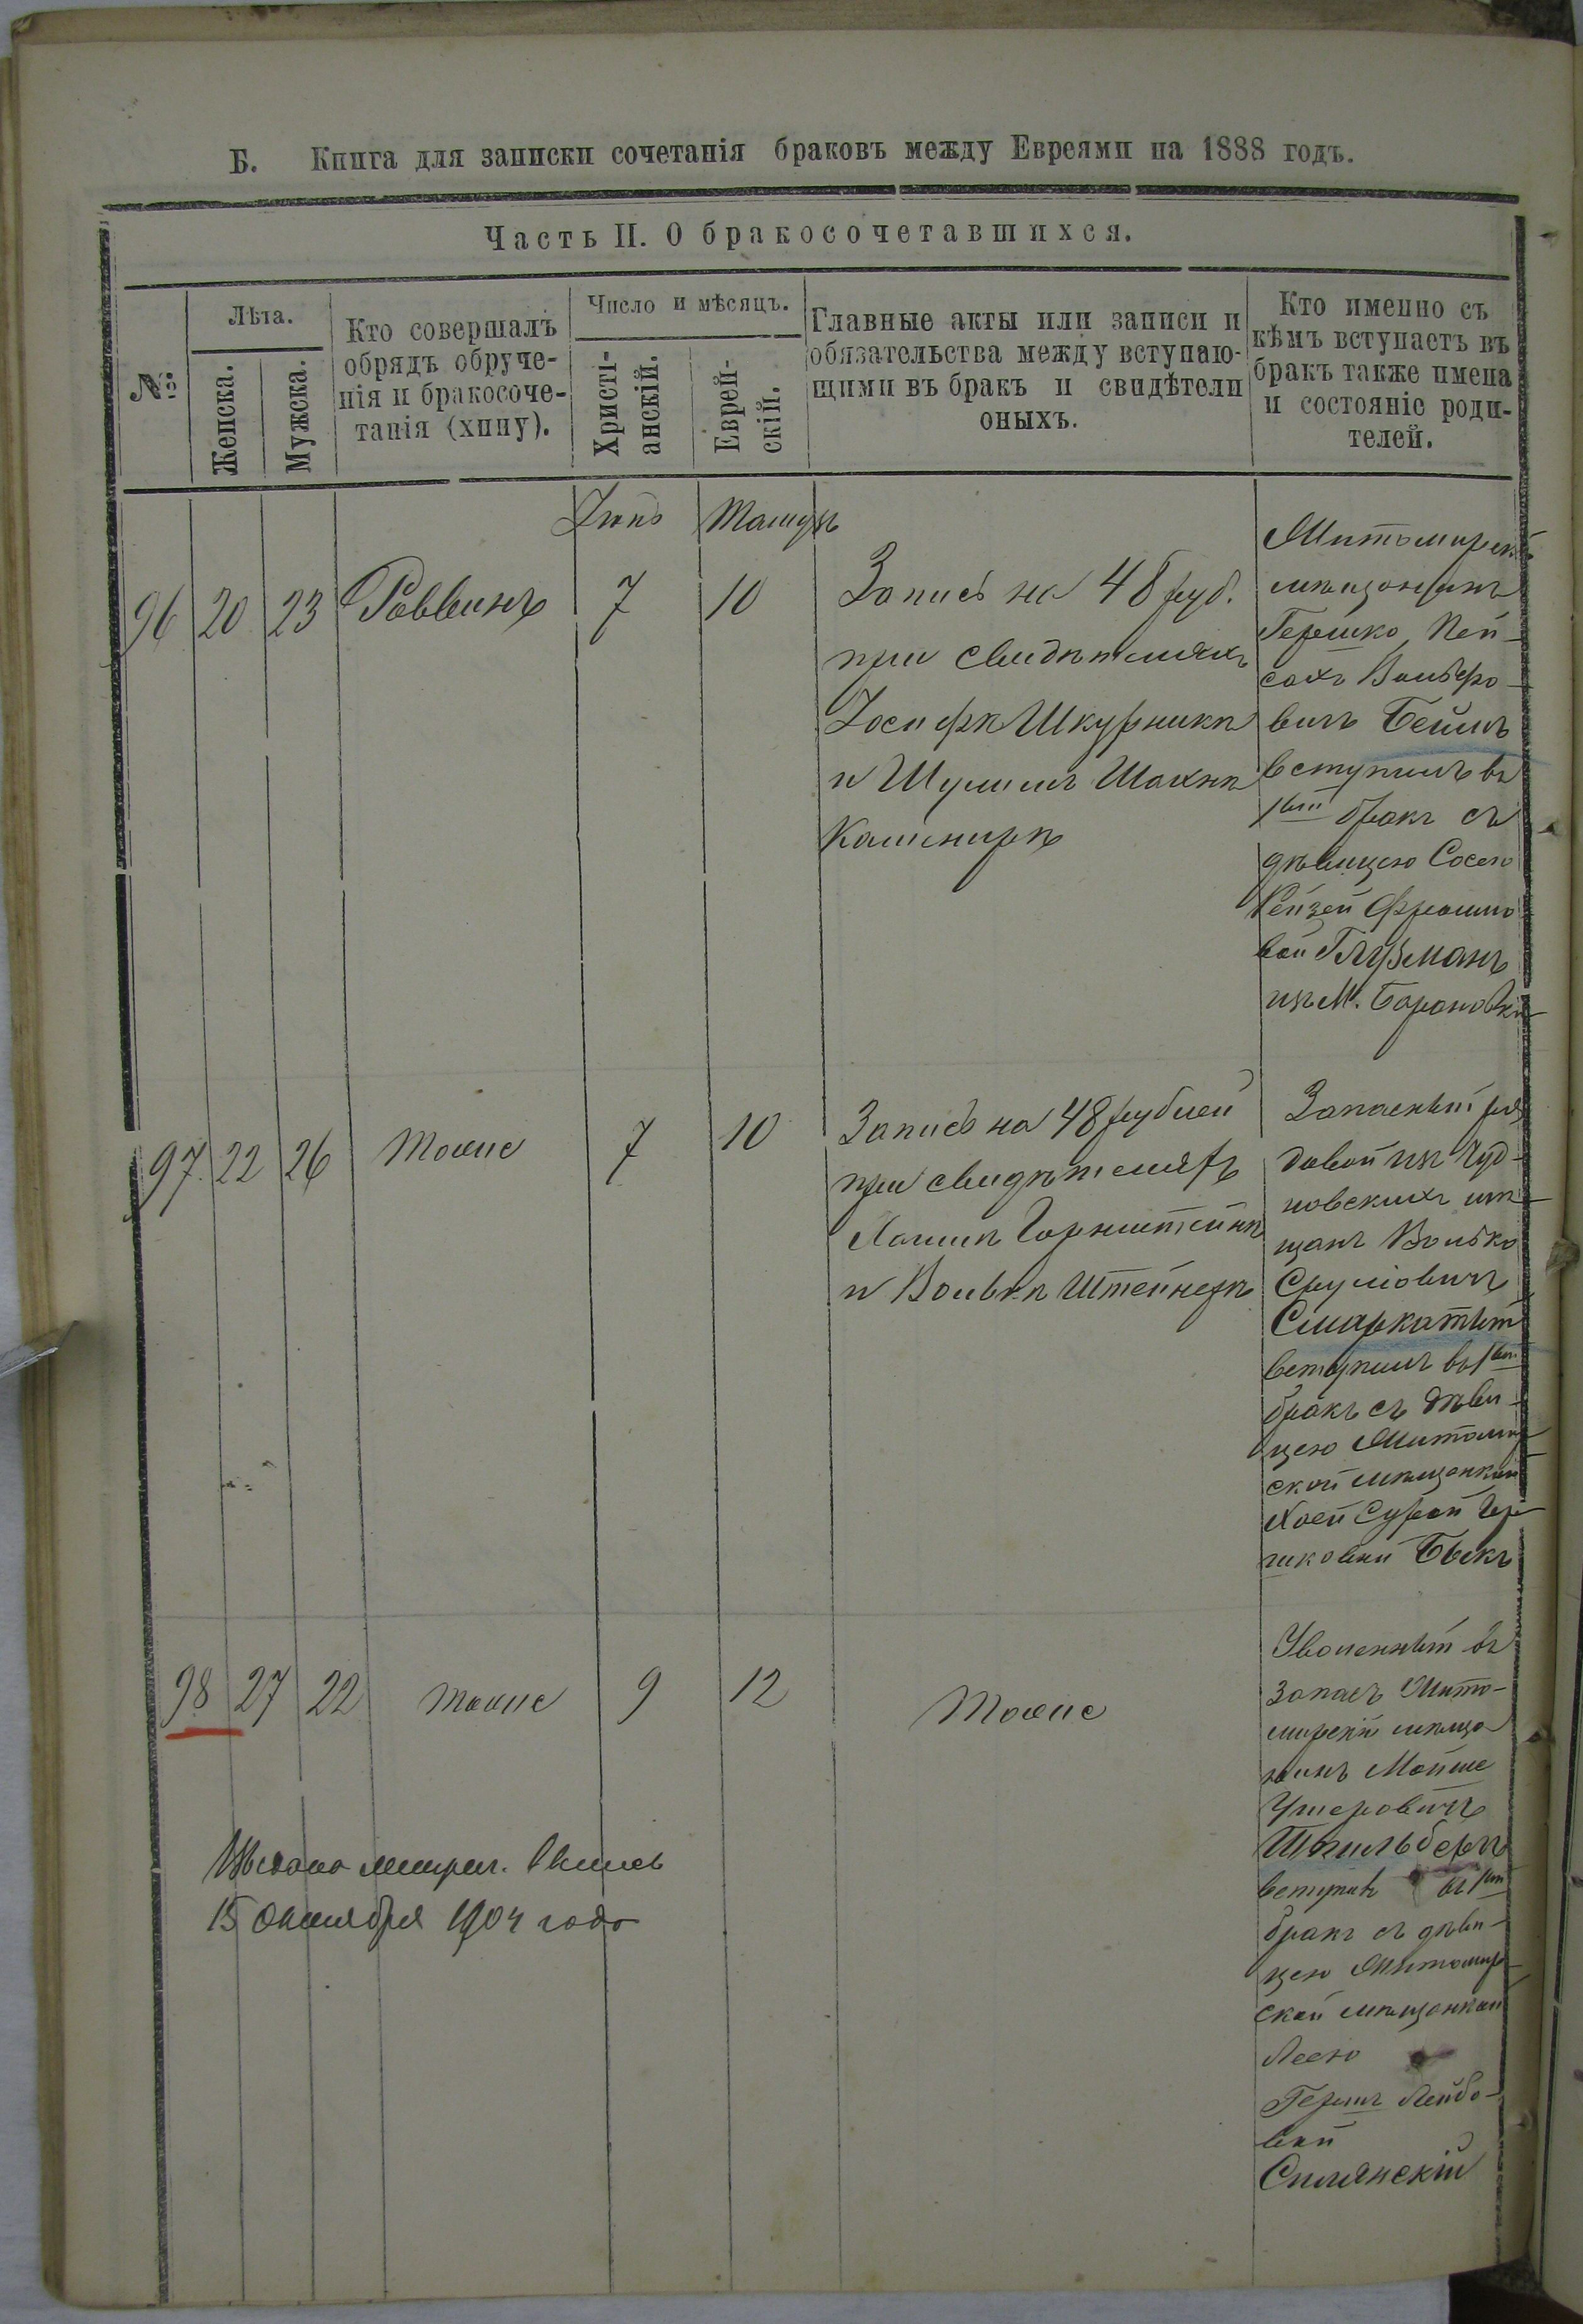 Б. Книга для записки сочетанія браковъ между Евреями на 1888 годъ.
Часть II. О бракосочетавшихся.
№
Лѣта.
Женска.
Мужска.
Кто совершалъ
обрядъ обруче-
нія и бракосоче-
танія (хипу).
Число и мѣсяцъ.
Христі-
анскій.
Еврей-
скій.
Главные акты или записи и
обязательства между вступаю-
щими въ бракъ и свидѣтели
оныхъ.
Кто именно съ
кѣмъ вступаетъ въ
бракъ также имена
и состояніе роди-
телей.
96 20 23 Раввинъ
7 10
Запись на 48 руб.
при свидѣтеляхъ
Іосифѣ Шкурникѣ
и Шулимъ Шахнѣ
Житомирскій
мѣщанинъ
Гершко Пей-
сахъ Вольфо-
вичъ Беймъ
вступилъ въ
1ый бракъ съ
дѣвицею Сосею
Рейзей Фроимо
вой Глузманъ
изъ М. Барановки
97. 22 26 Тоже 7 10
Запись на 48 рублей
при свидѣтеляхъ
Хаимѣ Горнштейнѣ
и Волькѣ Штейнерѣ
Запасный ря
довой изъ Чуд-
новскихъ мѣ-
щанъ Волько
Срулiовичъ
Смаркатый
вступилъ въ 1ый
бракъ съ дѣви-
цею Житомир
ской мѣщанкой
Хаей Сурой Гер
шковной Быкъ
98 27 22 тоже 9 12 Тоже
Уволенный въ
запасъ Жито-
мирскій мѣща
нинъ Мойше
Ушеровичъ
Шпильбергъ
вступилъ въ 1ый
бракъ съ дѣви-
цею Житомир
ской мѣщанкой
Леею
Гершъ Лейбо-
вной
Смилянскій
Выдана метрич. выпись
15 Октября 1904 года